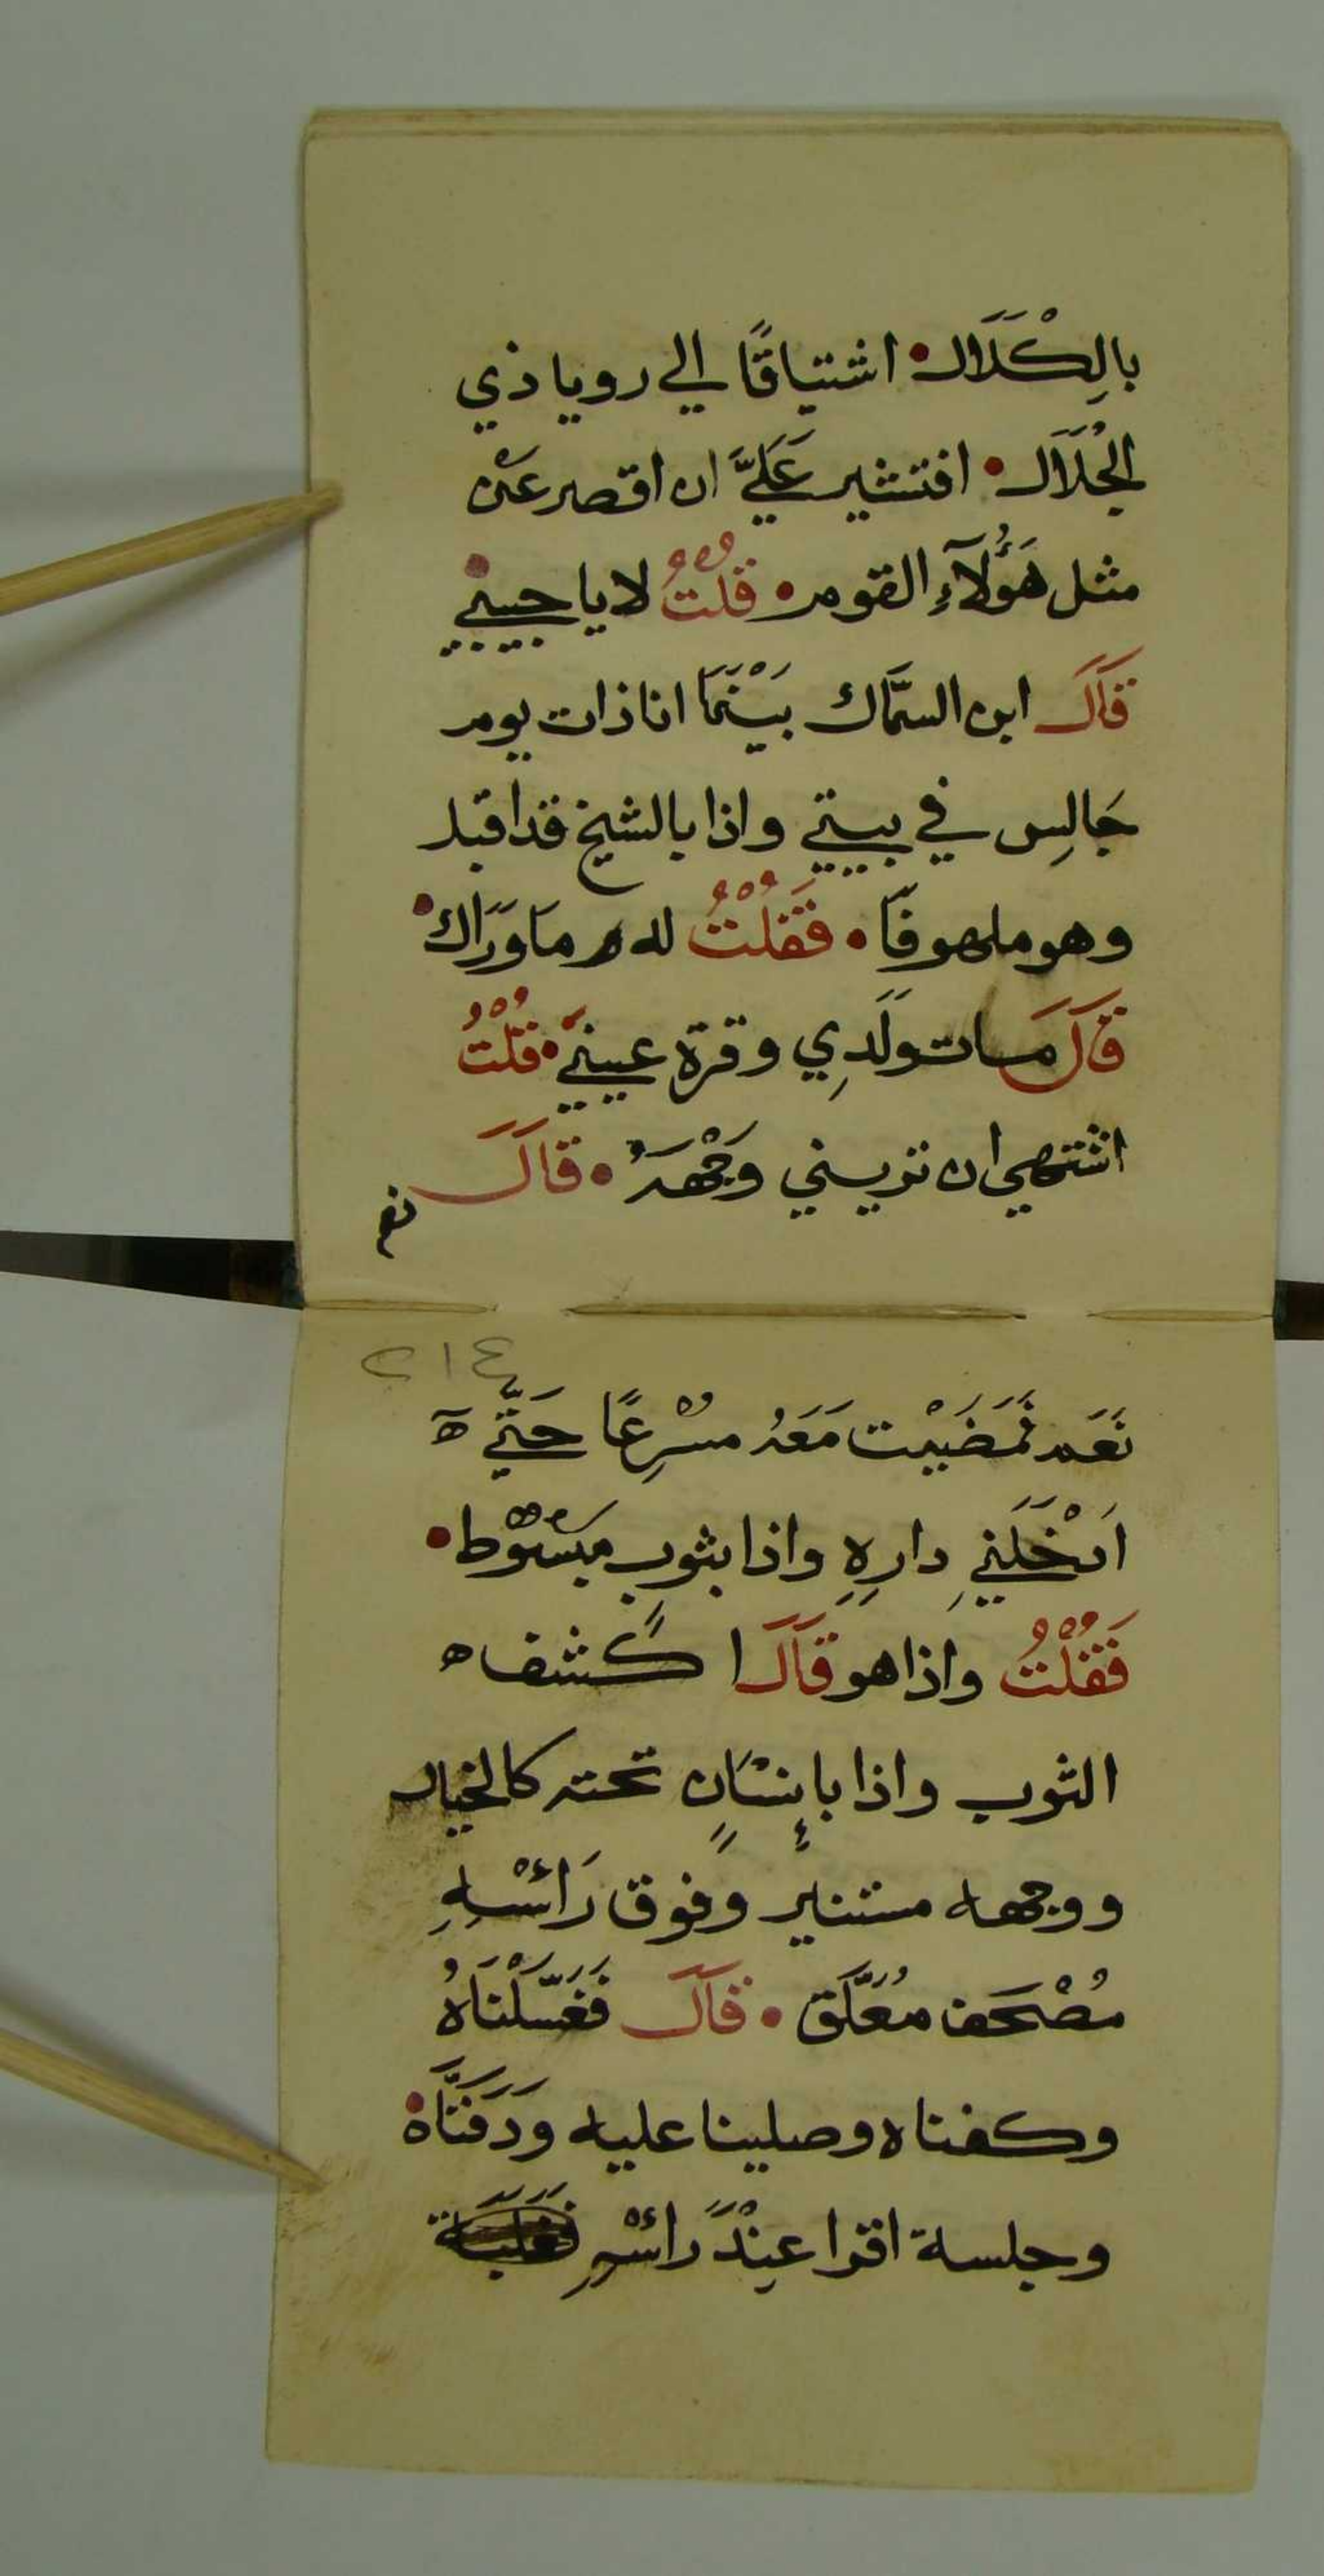 بالِكْلَالَ • اشتياقًا الي رويا ذي
الجْلَالَ • افتشير عَلَيَّ ان اقصر عَنْ
مثل هَؤُلَآءِ القوم • قُلْتُ لا يا حبيبي
قَالَ ابن السَّمَّاك بَيْنَمَا انا ذات يوم
جَالِس في بيتي واذا بالشيخ قد اقبل
وهو ملهوفًا • فَقُلْتُ له ما وَرَاك •
قَالَ مات ولَدِي وقرة عيني • قُلْتُ
اشتهي ان تريني وَجْهَهُ • قَالَ
نعم
٢١٤
نَعَم فَمَضَيْت مَعَهُ مُسْرِعًا حَتَّي ه
ادْخَلَني دارِهِ واذا بثوبٍ مَبْسُوْط •
فَقُلْتُ واذا هو قَالَ اكشف ه
الثوب واذا بإِنْسَانٍ تحته كالخيال
ووجهه مستنير وفوق رَأْسهِ
مُصْحَف مُعَلَّق • قَالَ فَغَسَّلْنَاهُ
وكفناه وصلينا عليه وَدَفَنَّاهْ •
وجلسة اقرا عِنْدَ رأسهِ